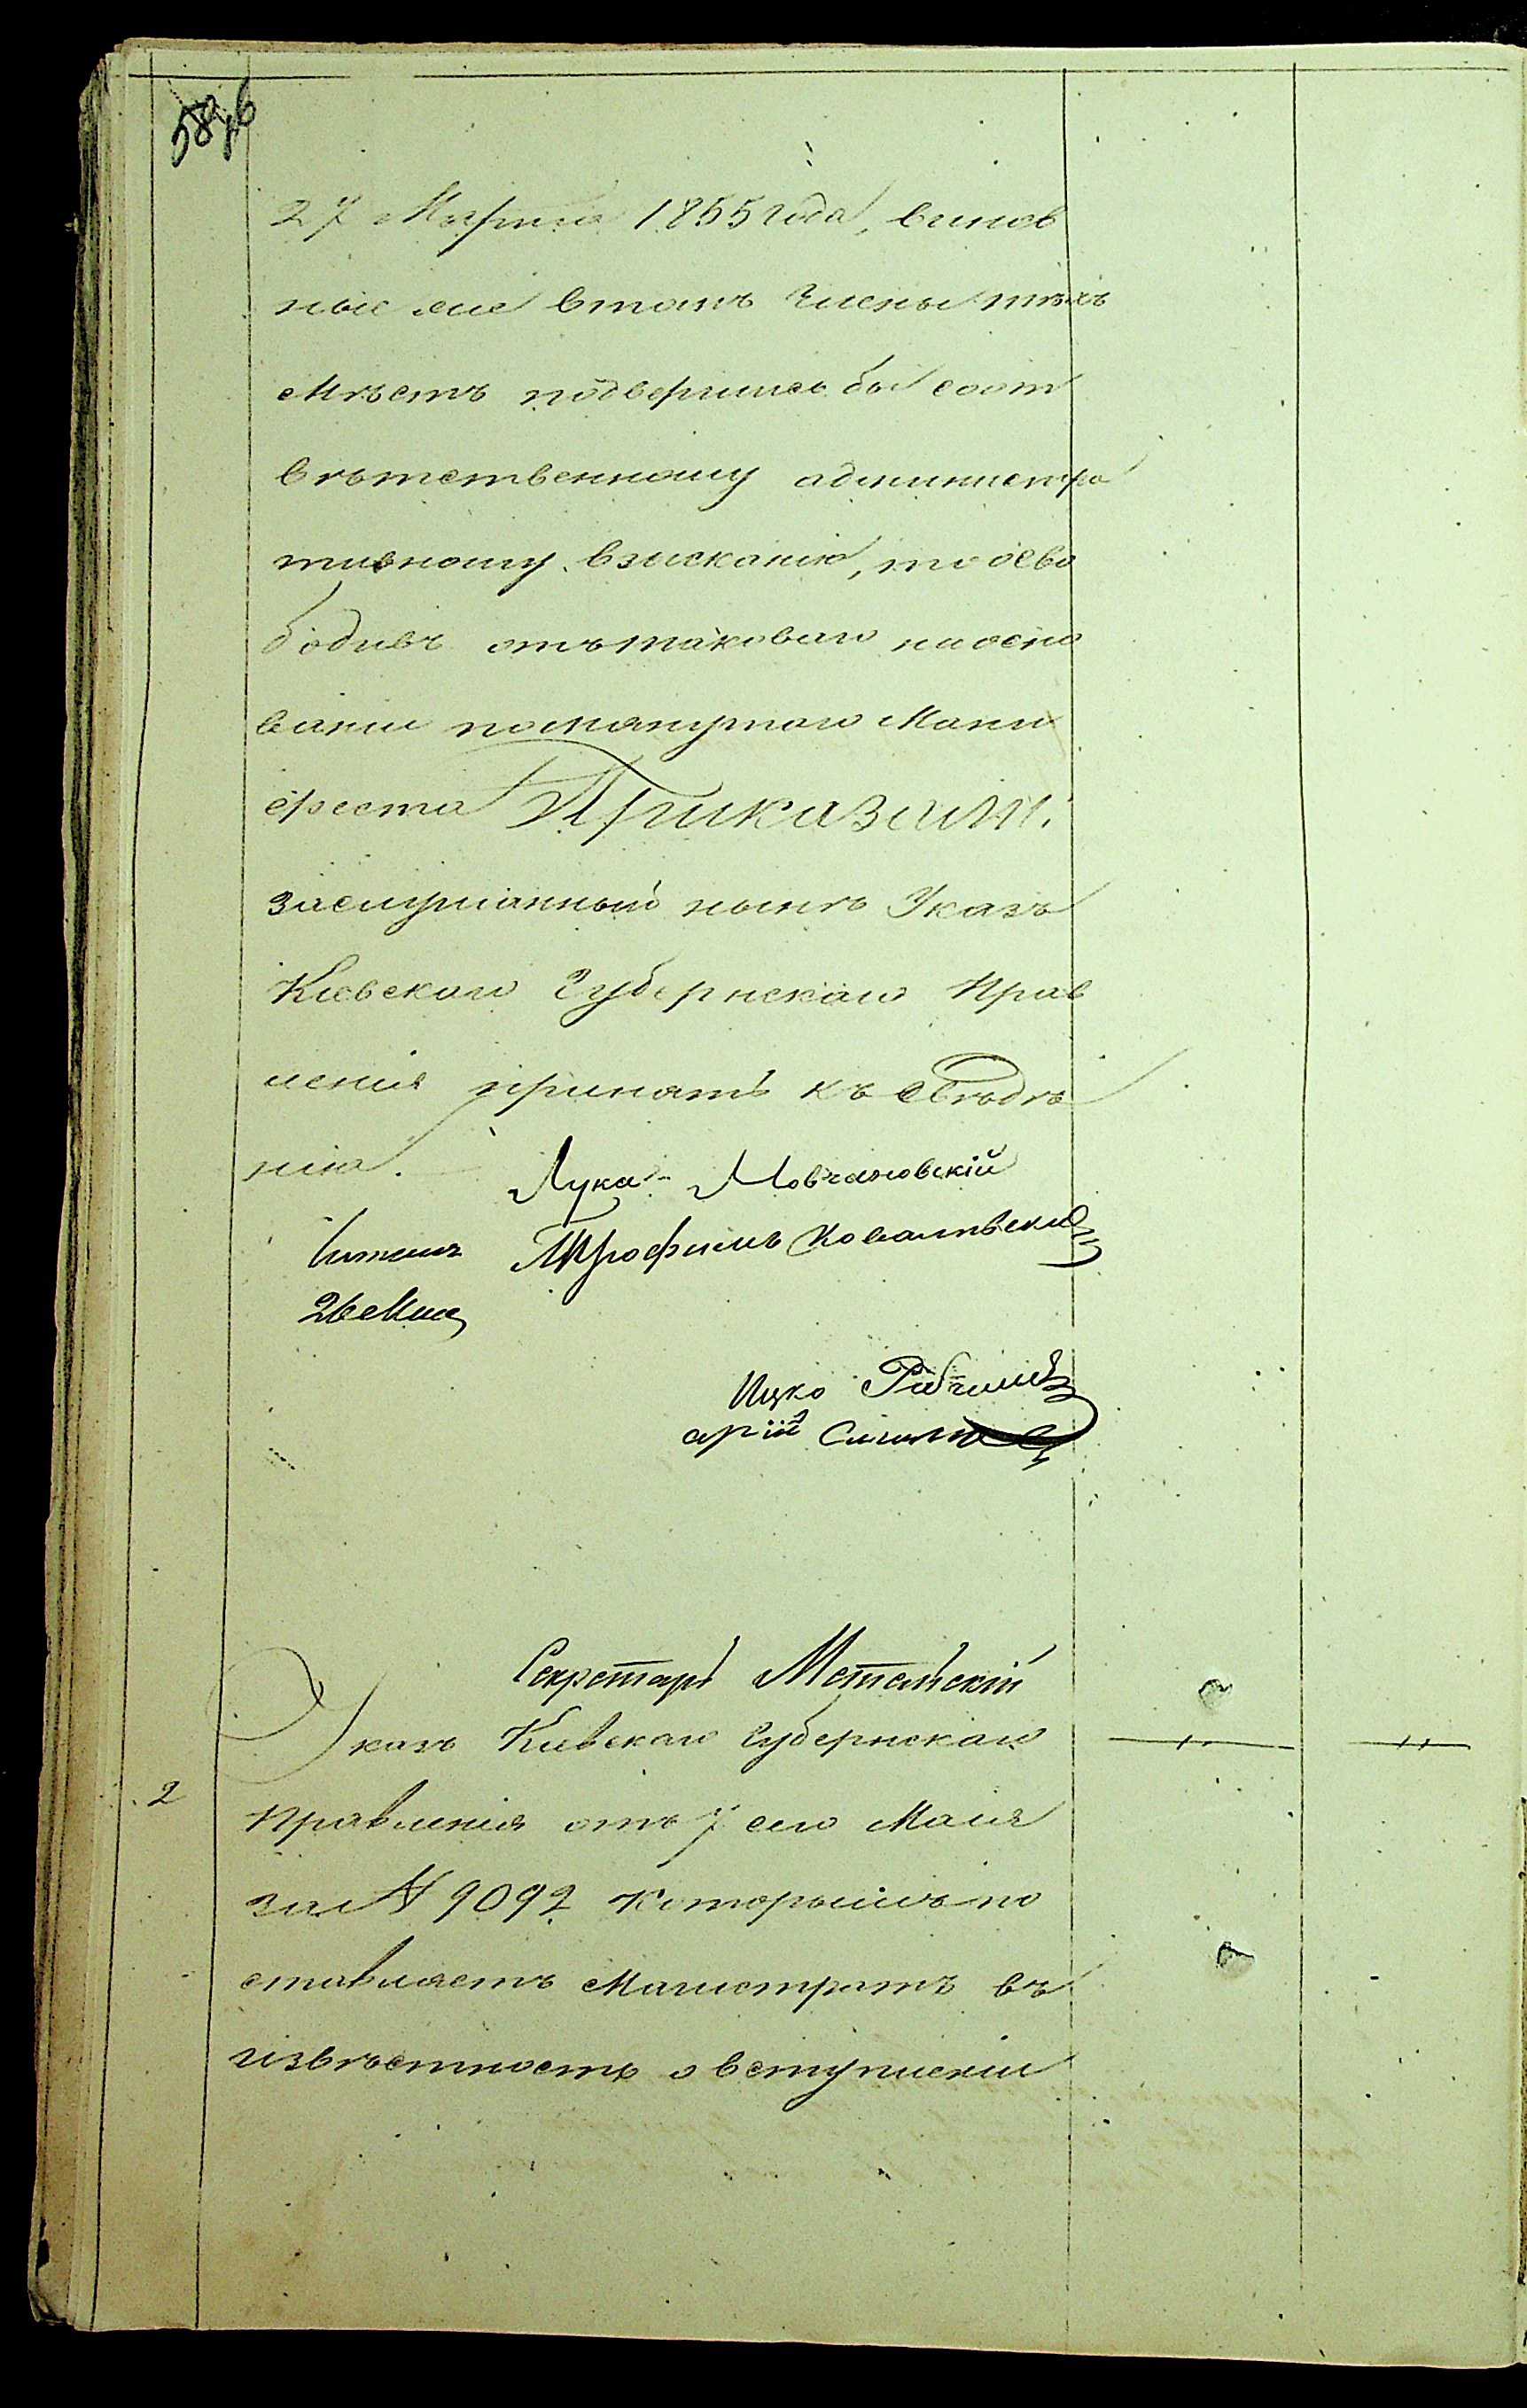 27 Марта 1855 года, винов
ные же въ томъ Члены тѣхъ
Мѣстъ подверглись бы соот
вѣтственному администра
тивному взысканію, то осво
бодивъ отъ таковаго на осно
ваніи помянутаго Мани
феста Приказали:
заслушанный нынѣ Указъ
Кіевскаго Губернскаго Прав
ленія принять къ свѣдѣ
нію.
Лука Мовчановскій
Читалъ Трофимъ Ковальвскій
26 Мая
Ицко
арій
Секретарь
Указъ Кіевскаго Губернскаго
2
Правленія отъ 7 сего Маія
за № 9092 которымъ по
ставляетъ Магистратъ въ
извѣстность о вступленіи